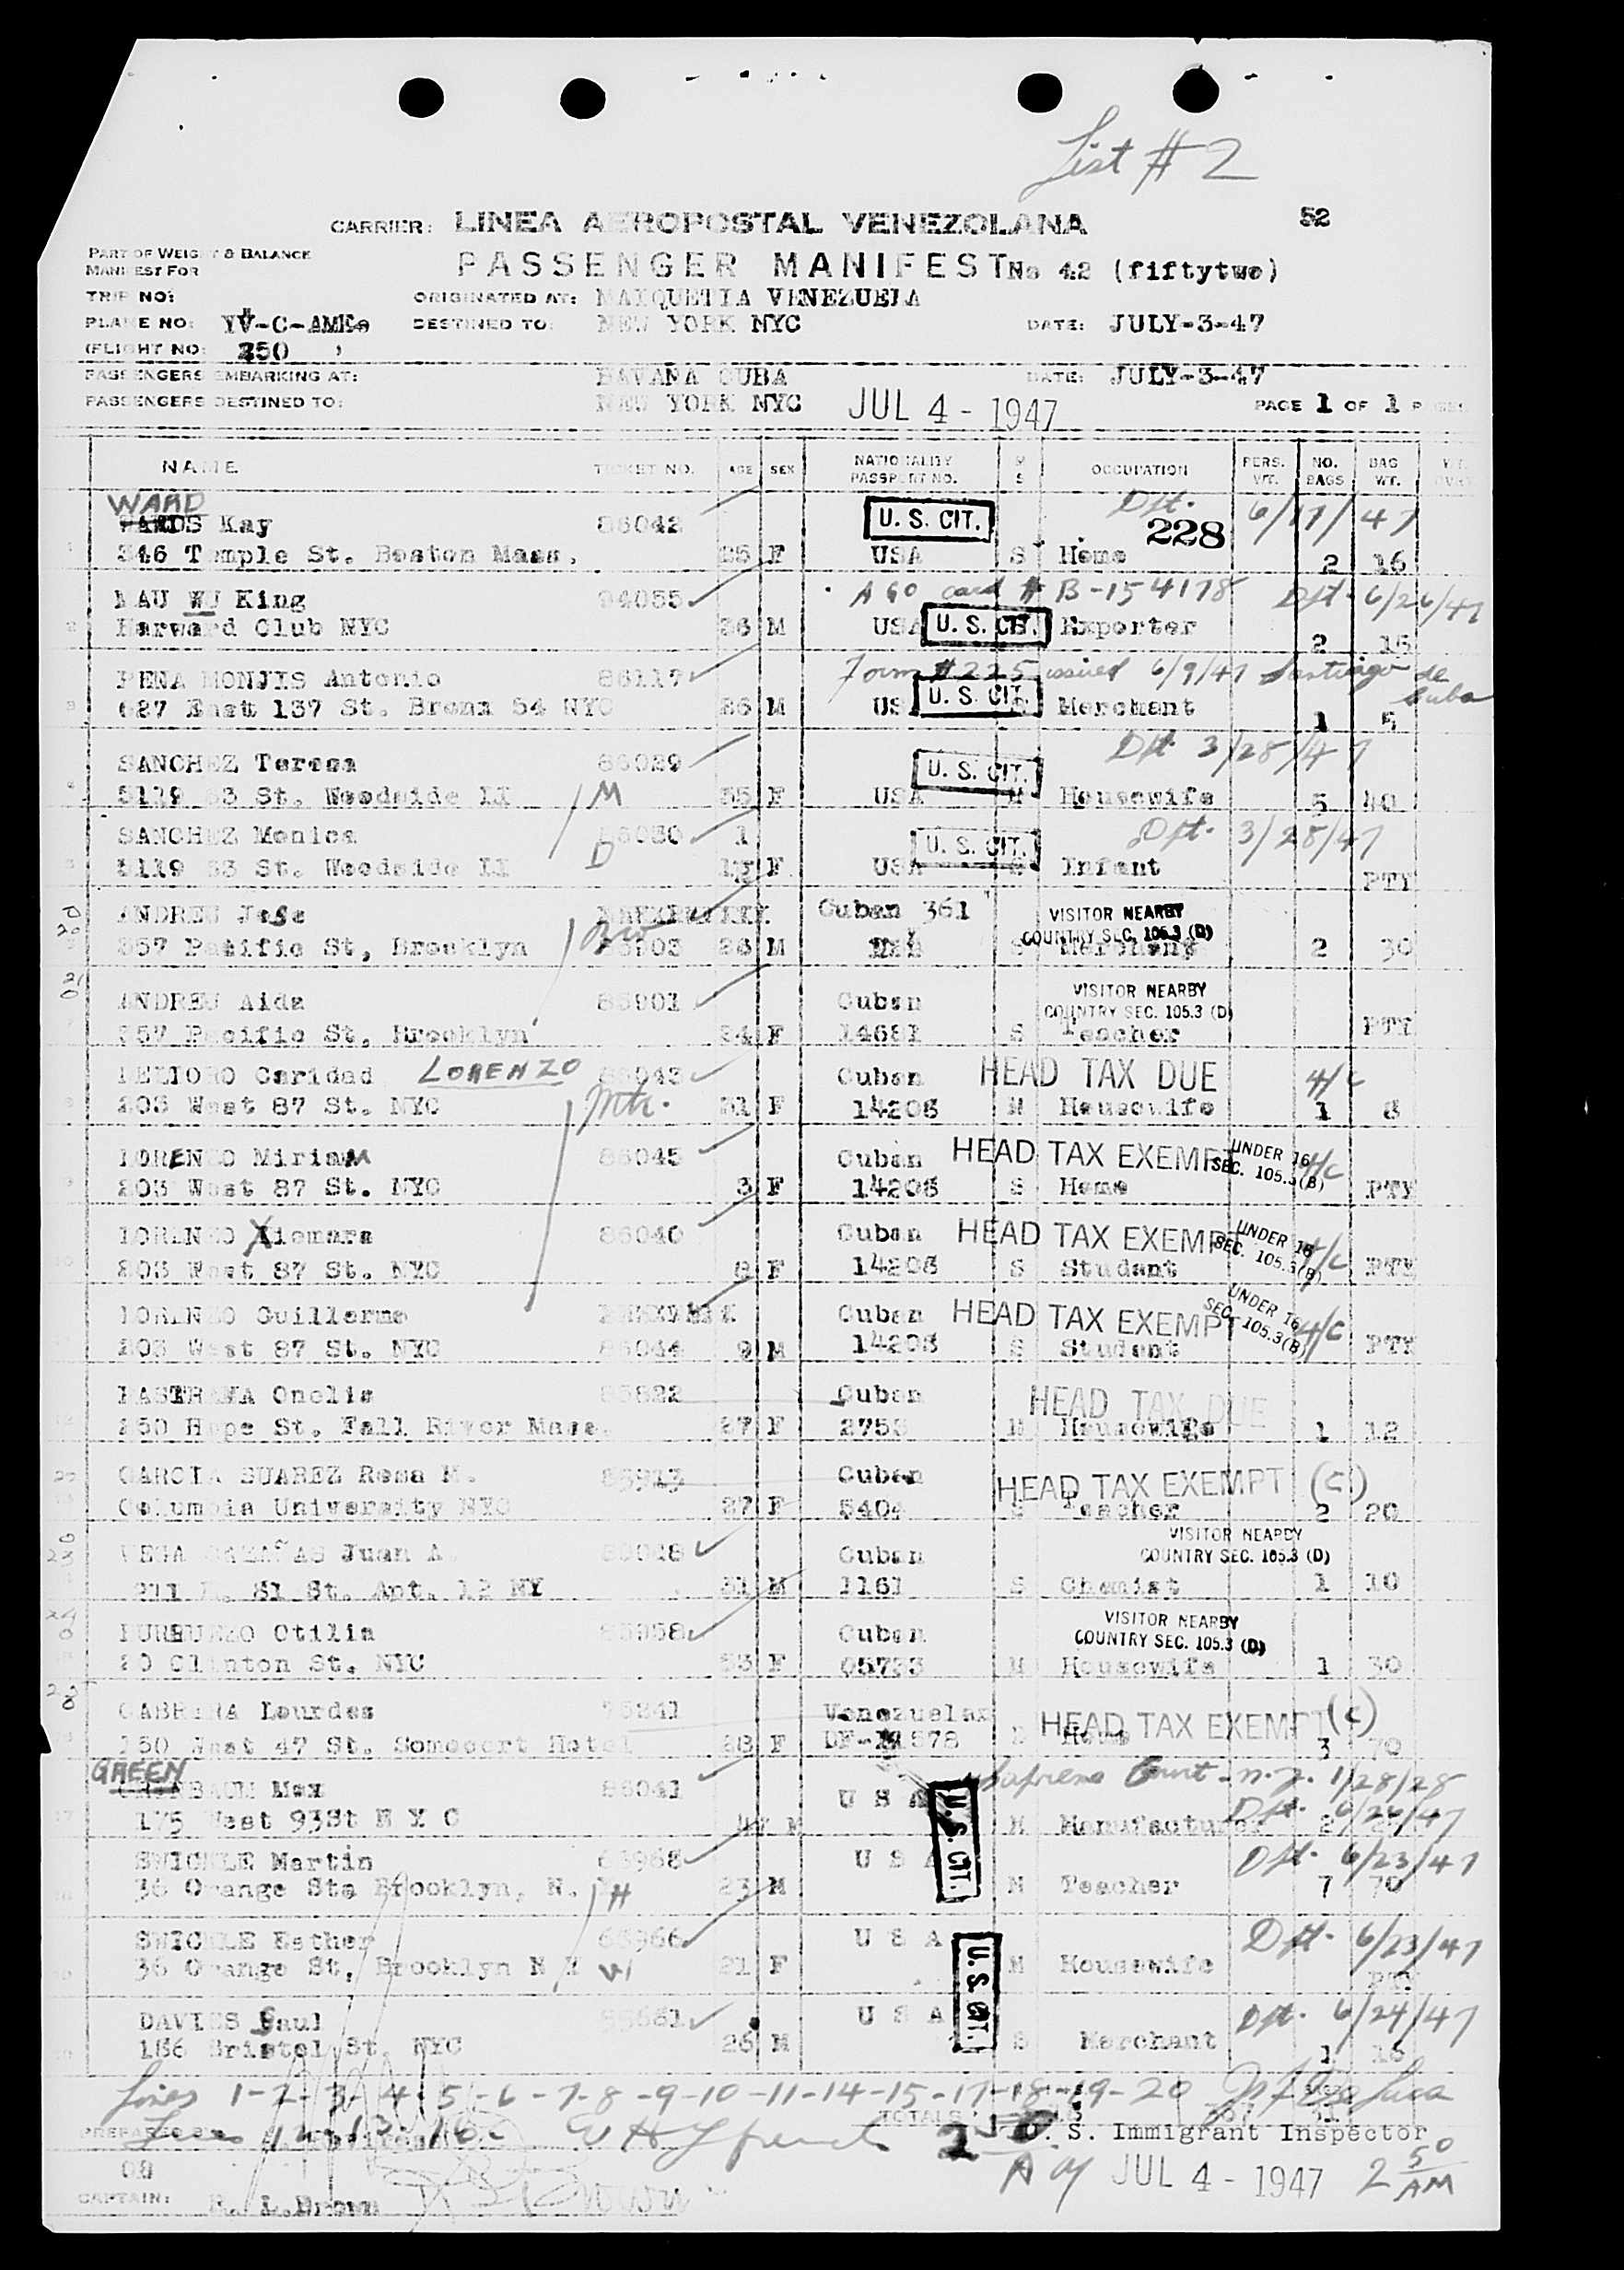 List # 2
CARRIER: LINEA AEROPOSTAL VENEZOLANA 52
PART OF WEIGHT & BALANCE
MANIFEST FOR
PASSENGER MANIFEST No 42 (fiftytwo)
TRIP NO: ORIGINATED AT: MAIQUETIA VENEZUELA
PLANE NO: YV-C-AME DESTINED TO: NEW YORK NYC DATE: JULY-3-47
(FLIGHT NO: 250
PASSENGERS EMBARKING AT: HAVANA CUBA DATE: JULY-3-47
PASSENGERS DESTINED TO: NEW YORK NYC JUL 4 - 1947 PAGE 1 OF 1 PAGES
NAME TICKET NO. AGE SEX NATIONALITY PASSPORT NO. M S OCCUPATION PERS. WT. NO. BAGS BAG WT.
WARD Dft. 6/17/47
Kay 86042 U. S. CIT. 228
1 346 Temple St. Boston Mass. 25 F USA S Home 2 16
MAU WU King 94055 AGO card # B-154178 Dft. 6/26/47
2 Harward Club NYC 26 M USA U. S. CIT. Exporter 2 15
PENA MONJIS Antonio 86117 Form #225 issued 6/9/47 Santiago de Cuba
3 627 East 137 St. Bronx 54 NYC 26 M USA U. S. CIT. Merchant 1 5
SANCHEZ Teresa 86029 U. S. CIT. Dft 3/28/47
4 5119 63 St. Woodside LI M 35 F USA M Housewife 5 40
SANCHEZ Monica 86030 1 U. S. CIT. Dft. 3/28/47
5 5119 63 St. Woodside LI D F USA S Infant PTY
ANDREU Jose Cuban 361 VISITOR NEARBY
COUNTRY SEC. 105.3 (D)
357 Pacific St, Brooklyn 26 M S Merchant 2 30
ANDREU Aida 85901 Cuban VISITOR NEARBY
COUNTRY SEC. 105.3 (D)
7 357 Pacific St, Brooklyn 24 F 14681 S Teacher PTY
Caridad LORENZO 86043 Cuban HEAD TAX DUE 4/c
8 203 West 87 St. NYC Mth. 31 F 14206 M Housewife 1 8
LORENZO Miriam 86045 Cuban HEAD TAX EXEMPT UNDER 16 SEC. 105.3(B) 4/c
9 203 West 87 St. NYC 3 F 14206 S Home PTY
LORENZO Xiomara 86040 Cuban HEAD TAX EXEMPT UNDER 16 SEC. 105.3(B) 4/c
10 203 West 87 St. NYC 8 F 14206 S Student PTY
LORENZO Guillermo Cuban HEAD TAX EXEMPT UNDER 16 SEC. 105.3(B) 4/c
203 West 87 St. NYC 86044 9 M 14206 S Student PTY
PASTRANA Onelia 85822 Cuban HEAD TAX DUE
250 Hope St. Fall River Mass. 27 F 2753 M Housewife 1 12
GARCIA SUAREZ Rosa M. 85913 Cuban HEAD TAX EXEMPT (C)
Columbia University NYC 27 F 5404 S Teacher 2 20
VEGA Juan A. 86028 Cuban VISITOR NEARBY
COUNTRY SEC. 105.3 (D)
St. Apt. 12 NY 31 M 1161 S Chemist 1 10
Otilia 85958 Cuban VISITOR NEARBY
COUNTRY SEC. 105.3 (D)
20 Clinton St. NYC 53 F 05733 M Housewife 1 30
CABRERA Lourdes Venezuelan HEAD TAX EXEMPT (C)
150 West 47 St. Somocert Hotel 28 F 3 70
GREEN Supreme Court - N.Y. 1/28/28
Max 86041 U S A U. S. CIT. Dft. 6/26/47
17 175 West 93St N Y C M M Manufacturer 2
SWICKLE Martin 65968 U S A Dft. 6/23/47
36 Orange Sts Brooklyn, N. H 23 M M Teacher 7 70
SWICKLE Esther 65966 U S A U. S. CIT. Dft. 6/23/47
36 Orange St, Brooklyn N Y W 21 F M Housewife PTY
DAVIES Saul 85661 U S A Dft. 6/24/47
186 Bristol St. NYC 26 M S Merchant 1 16
Lines 1-2-3-4-5-6-7-8-9-10-11-14-15-17-18-19-20
TOTALS
Lines 12-13-16- W H French 250 U. S. Immigrant Inspector
PREPARED BY
AM JUL 4 - 1947 2 50 AM
CAPTAIN: R. L. Brown